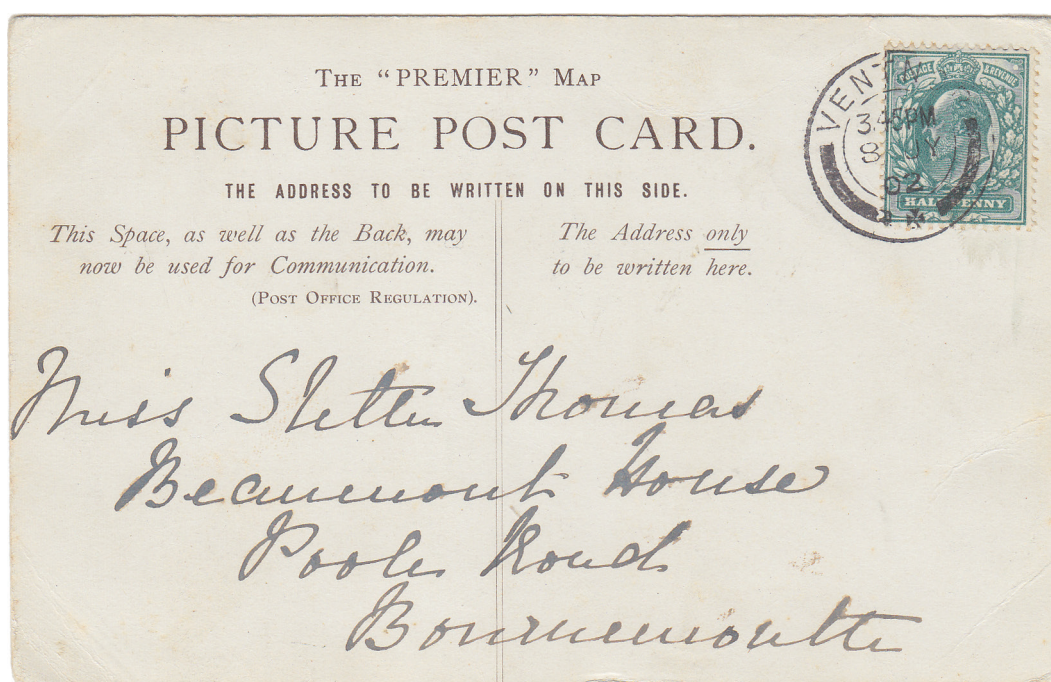 The “PREMIER” Map
PICTURE POST CARD.
THE ADDRESS TO BE WRITTEN ON THIS SIDE.
This Space, as well as the Back, may
now be used for Communication.
(Post Office Regulation).
The Address only
to be written here.
POSTAGE & REVENUE
HALFPENNY
3.45PM
8 JY
02
Miss Thomas
Beaumont House
Poole Road
Bournemouth